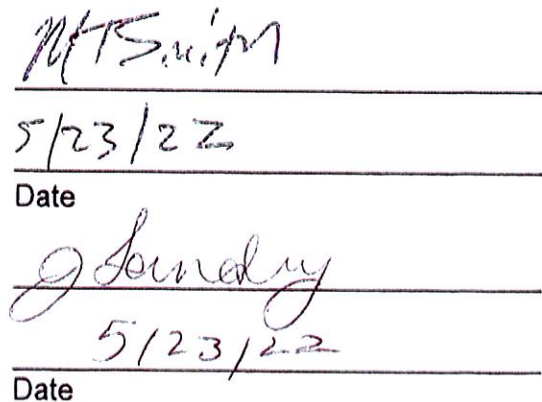 MTSmith
5/23/22
Date
5/23/22
Date